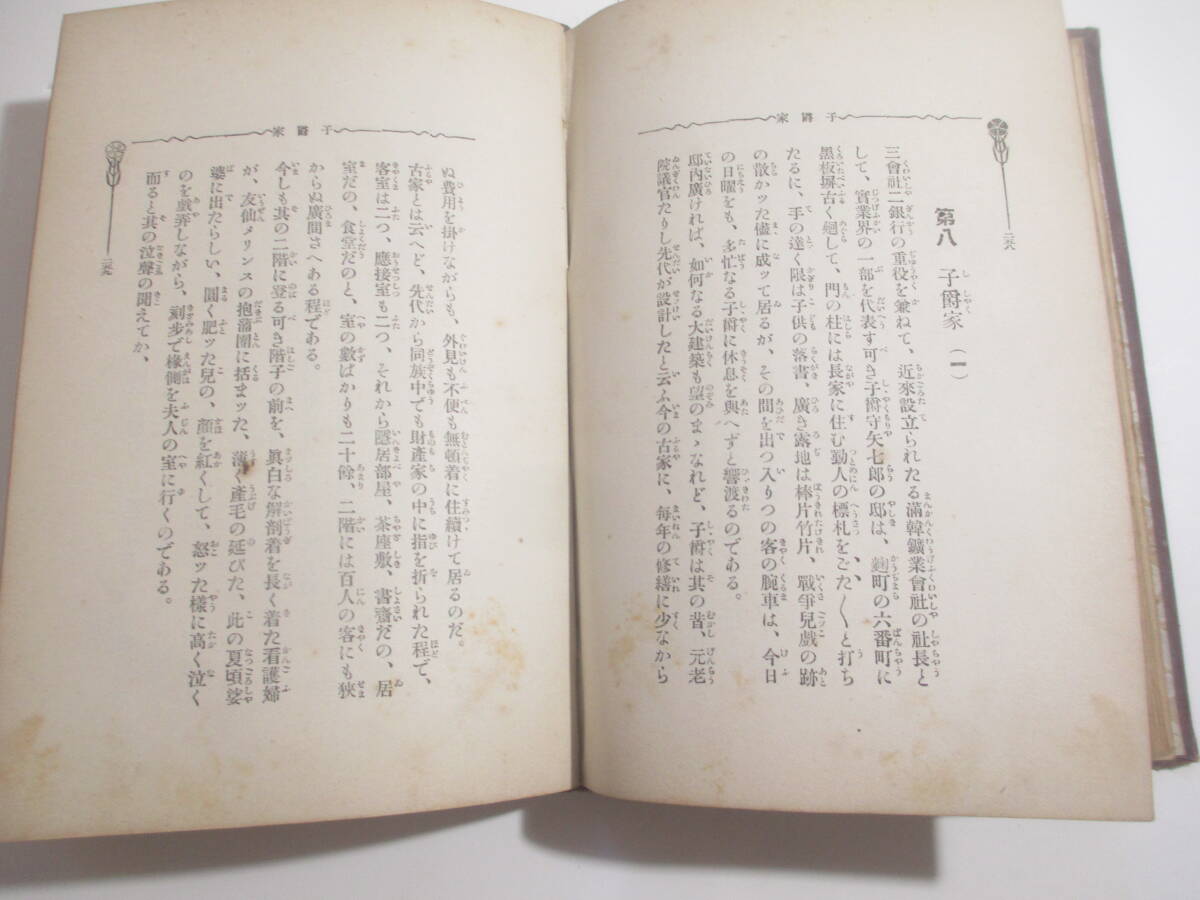 子爵家
第八　子爵家　（一）
三會社二銀行の重役を兼ねて、近來設立られたる滿韓鑛業會社の社長と
して、實業界の一部を代表す可き子爵守矢七郎の邸は、麹町の六番町に
黑板塀古く廻して、門の柱には長家に住む勤人の標札をごた〱と打ち
たるに、手の達く限は子供の落書、廣き露地は棒片竹片、戰爭兒戲の跡
の散かッた儘に成ッて居るが、その間を出つ入りつの客の腕車は、今日
の日曜をも、多忙なる子爵に休息を與へずと響渡るのである。
邸内廣ければ、如何なる大建築も望のまゝなれど、子爵は其の昔、元老
院議官たりし先代が設計したと云ふ今の古家に、每年の修繕に少なから
二六八
子爵家
ぬ費用を掛けながらも、外見も不便も無頓着に住續けて居るのだ。
古家とは云へど、先代から同族中でも財產家の中に指を折られた程で、
客室は二つ、應接室も二つ、それから隱居部屋、茶座敷、書齋だの、居
室だの、食堂だのと、室の數ばかりも二十餘、二階には百人の客にも狹
からぬ廣間さへある程である。
今しも其の二階に登る可き階子の前を、眞白な解剖着を長く着た看護婦
が、友仙メリンスの抱蒲團に括まッた、薄く產毛の延びた、此の夏頃娑
婆に出たらしい、圓く肥ッた兒の、顏を紅くして、怒ッた樣に高く泣く
のを戲弄しながら、刻步で椽側を夫人の室に行くのである。
而ると其の泣聲の聞えてか、
二六九